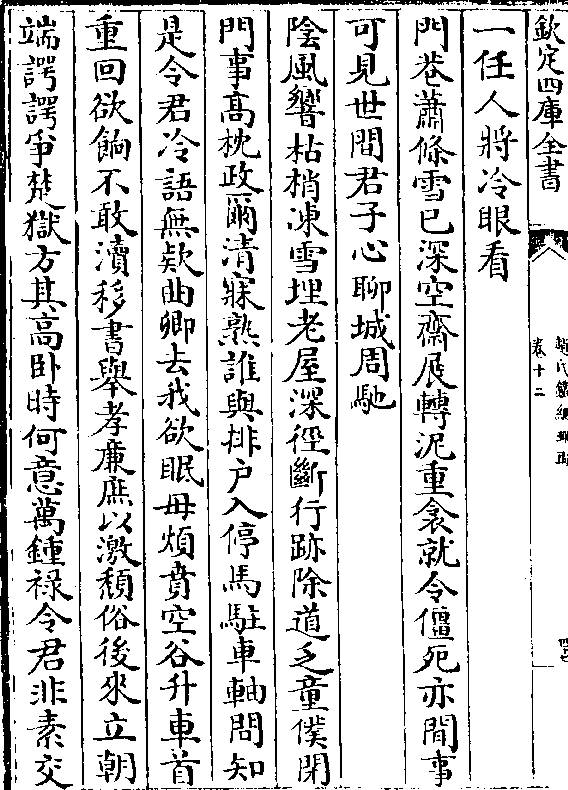 欽定四庫全書
卷十二
一任人將冷眼看
門巷蕭條雪已深空齋展轉泥重衾就令僵死亦閒事
可見世間君子心聊城周馳
陰風響枯梢凍雪埋老屋深徑斷行跡除道乏童僕閉
門事高枕政爾清寐熟誰與排户入停馬駐車軸問知
是令君冷語無欵曲卿去我欲眠毋煩賁空谷升車首
重回欲餉不敢瀆移書舉孝廉庶以激頽俗後來立朝
端諤諤爭楚獄方其高卧時何意萬鍾禄令君非素交